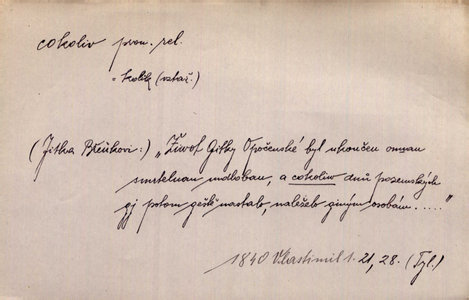 cokoliv pron. rel.
= kolik (vztaž.)
(Jitka Břeňkovi:) „Žiwot Gitky Opočenské byl ukončen onnau
smrtelnau mdlobau, a cokoliw dnů pozemských
gj potom geště nastalo, náleželo giným osobám....."
1840 Vlastimil 1. 21, 28. (Tyl.)